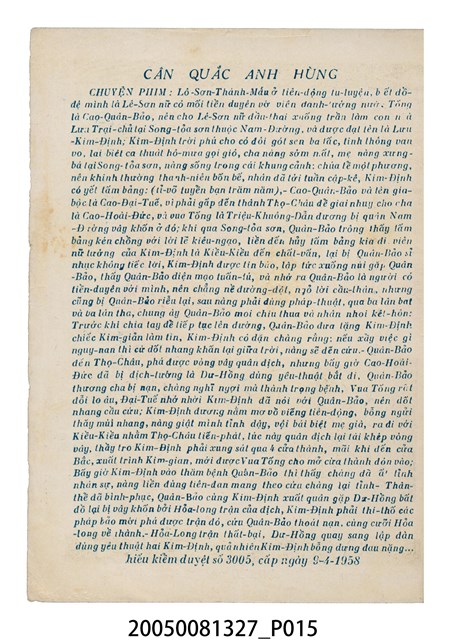 CÂN QUẮC ANH HÙNG
CHUYỆN PHIM : Lê-Sơn-Thánh-Mẫu ở tiên-động tu-luyện, bết đồ-
đệ mình là Lê-Sơn nữ có mối tiền duyên với viên danh-tướng nước Tống
là Cao-Quân-Bảo, nên cho Lê-Sơn nữ đầu-thai xuống trần làm con
Lưu Trại-chủ tại Song-tỏa sơn thuộc Nam-Đường, và được đặt tên là Lưu
-Kim-Định; Kim-Định trời phú cho có đôi gót sen ba tấc, tinh thông văn
vo, lại biết cả thuật hô-mưa gọi gió, cha nàng sớm mất, mẹ nàng xưng-
bá tại Song-tỏa sơn, nàng sống trong cái khung cảnh: chúa tể một phương,
nên khinh thường thanh-niên bốn bể, nhân đã tới tuần cập-kê, Kim-Định
có yết tấm bảng: (tỉ-võ tuyển bạn trăm năm),-Cao-Quân-Bảo và tên gia-
bộc là Cao-Đại-Tuế, vì phải gấp đến thành Thọ-Châu để giải nguy cho cha
là Cao-Hoài-Đức, và vua Tống là Triệu-Khuông-Dẫn đương bị quân Nam
-Đường vây khốn ở đó; khi qua Song-tỏa sơn, Quân-Bảo trông thấy tấm
bảng kén chồng với lời lẽ kiêu-ngạo, liền đến hủy tấm bảng kia đi viên
nữ tướng của Kim-Định là Kiều-Kiều đến chất-vấn, lại bị Quân-Bảo sỉ
nhục không tiếc lời, Kim-Định được tin báo, lập tức xuống núi gặp Quân
-Bảo, thấy Quân-Bảo diện mạo tuấn-tú, và nhớ ra Quân-Bảo là người có
tiền-duyên với mình, nên chẳng nề đường-đột, ngỏ lời cầu-thân, nhưng
cũng bị Quân-Bảo riễu lại, sau nàng phải dùng pháp-thuật, qua ba lần bắt
và ba lần tha, chung ấy Quân-Bảo mới chịu thua và nhân nhoi kết-hôn:
Trước khi chia tay để tiếp tục lên đường, Quân-Bảo đưa tặng Kim-Định
chiếc Kim-giản làm tin, Kim-Định có dặn chàng rằng: nếu xẩy việc gì
nguy-nan thì cứ đốt nhang khấn lại giữa trời, nàng sẽ đến cứu.- Quân-Bảo
đến Thọ-Châu, phá được vòng vây quân địch, nhưng bấy giờ Cao-Hoài-
Đức đã bị địch-tướng là Dư-Hồng dùng yêu-thuật bắt đi. Quân-Bảo
thương cha bị nạn, chàng nghĩ ngợi mà thành trọng bệnh, Vua Tống rất
đỗi lo âu, Đại-Tuế nhớ nhời Kim-Định đã nói với Quân-Bảo, nên đốt
nhang cầu cứu; Kim-Định đương nằm mơ về viếng tiên-động, bỗng ngửi
thấy mùi nhang, nàng giật mình tỉnh dậy, vội bái biệt mẹ già, ra đi với
Kiều-Kiều nhằm Thọ-Châu tiến-phát, lúc này quân địch lại tái khép vòng
vây, thầy trò Kim-Định phải xung sát qua 4 cửa thành, mãi khi đến cửa
Bắc, xuất trình Kim-gian, mới được Vua Tống cho mở cửa thành đón vào;
Bấy giờ Kim-Định vào thăm bệnh Quân-Bảo thì thấy chàng đã
nhân sự, nàng liền dùng tiên-đan mang theo cứu chàng lại tỉnh- Thân-
thể đã bình-phục, Quân-Bảo cùng Kim-Định xuất quân gặp Dư-Hồng bắt
đồ lại bị vây khốn bởi Hỏa-long trận của địch, Kim-Định phải thi-thố các
pháp bảo mới phá được trận đó, cứu Quân-Bảo thoát nạn. cùng cưỡi Hỏa
-long về thành,- Hỏa-Long trận thất-bại. Dư-Hồng quay sang lập đàn
dùng yêu thuật hai Kim-Định, quả nhiên Kim-Định bỗng dưng đau nặng...
hiếu kiểm duyệt số 3005, cấp ngày 9-4-1958
20050081327_P015